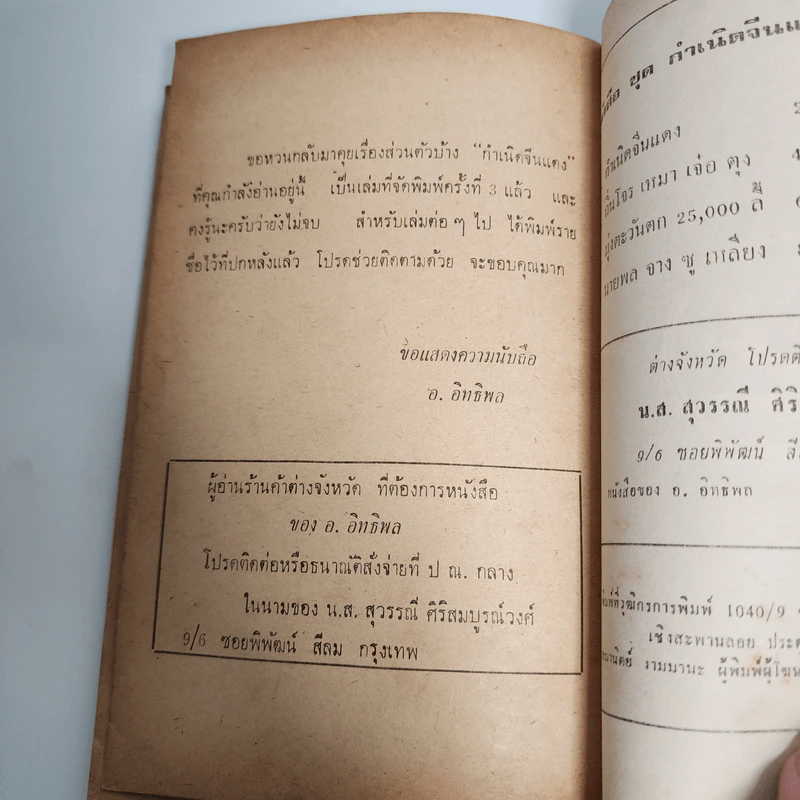 ขอหวนกลับมาคุยเรื่องส่วนตัวบ้าง “กำเนิดจีนแดง”
ที่คุณกำลังอ่านอยู่นี้ เป็นเล่มที่จัดพิมพ์ครั้งที่ 3 แล้ว และ
คงรู้นะครับว่ายังไม่จบ สำหรับเล่มต่อ ๆ ไป ได้พิมพ์ราย
ชื่อไว้ที่ปกหลังแล้ว โปรดช่วยติดตามด้วย จะขอบคุณมาก
ขอแสดงความนับถือ
อ. อิทธิพล
ผู้อ่านร้านค้าต่างจังหวัด ที่ต้องการหนังสือ
ของ อ. อิทธิพล
โปรดติดต่อหรือธนาณัติสั่งจ่ายที่ ป ณ. กลาง
ในนามของ น.ส. สุวรรณี ศิริสมบูรณ์วงศ์
9/6 ซอยพิพัฒน์ สีลม กรุงเทพ
ชุด กำเนิดจีนแ
กำเนิดจีนแดง
เหมา เจ๋อ ตุง
มุ่งตะวันตก 25,000 ลี้
นายพล จาง ซู เหลียง
ต่างจังหวัด โปรดติ
น.ส. สุวรรณี ศิริ
9/6 ซอยพิพัฒน์ สี
หนังสือของ อ. อิทธิพล
พิมพ์ที่วุฒิกรการพิมพ์ 1040/9
เชิงสะพานลอย ประต
งามมานะ ผู้พิมพ์ผู้โฆษ